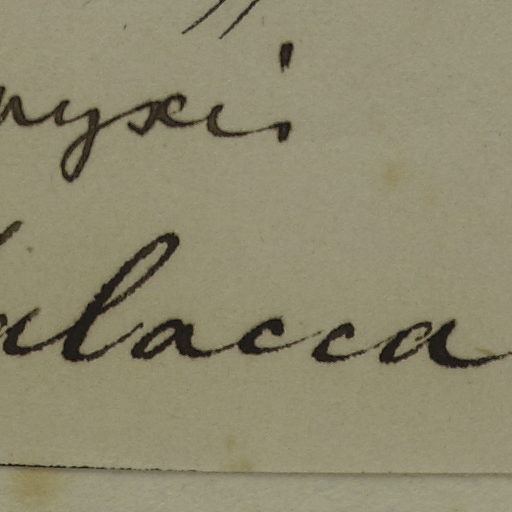 nyxis
alacca